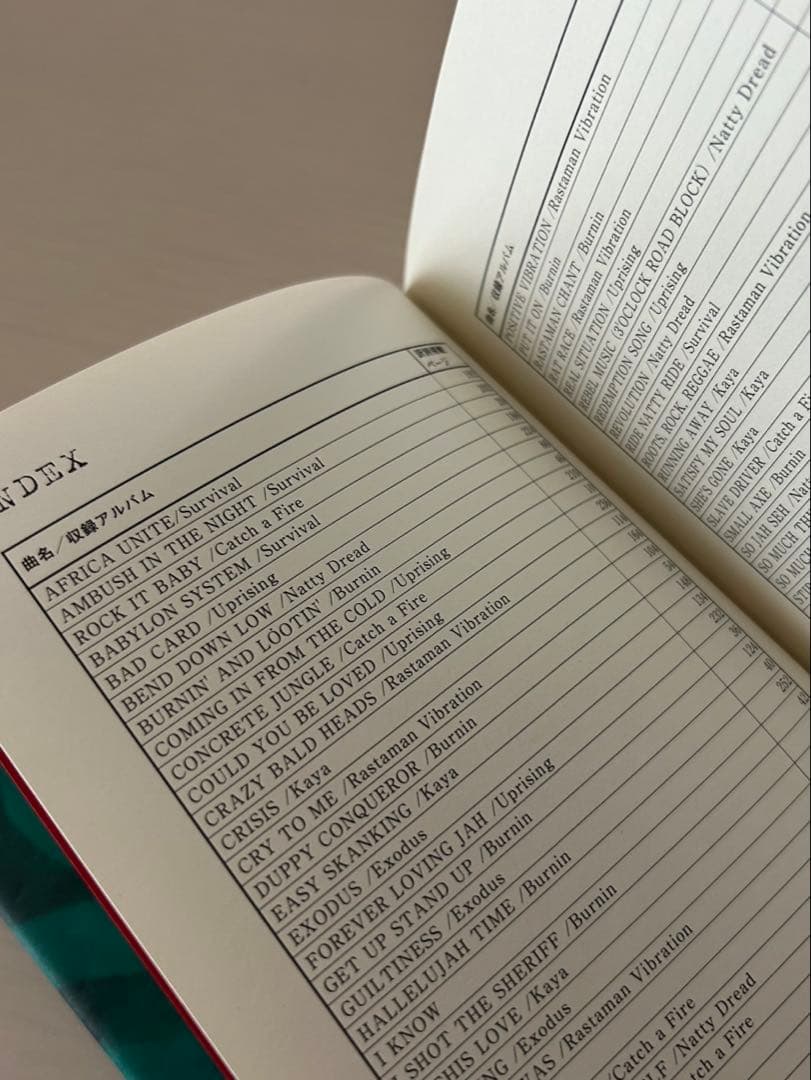 NDEX
曲名/収録アルバム
ページ
AFRICA UNITE/Survival
AMBUSH IN THE NIGHT /Survival
ROCK IT BABY /Catch a Fire
BABYLON SYSTEM /Survival
BAD CARD /Uprising
BEND DOWN LOW /Natty Dread
BURNIN' AND LOOTIN' /Burnin
COMING IN FROM THE COLD /Uprising
CONCRETE JUNGLE /Catch a Fire
COULD YOU BE LOVED /Uprising
CRAZY BALD HEADS /Rastaman Vibration
CRISIS /Kaya
CRY TO ME /Rastaman Vibration
DUPPY CONQUEROR /Burnin
EASY SKANKING /Kaya
EXODUS /Exodus
FOREVER LOVING JAH /Uprising
GET UP STAND UP /Burnin
GUILTINESS /Exodus
HALLELUJAH TIME /Burnin
I KNOW
I SHOT THE SHERIFF /Burnin
HIS LOVE /Kaya
NG /Exodus
AS /Rastaman Vibration
/Catch a Fire
LF /Natty Dread
tch a Fire
曲名/収録アルバム
POSITIVE VIBRATION /Rastaman Vibration
PUT IT ON /Burnin
RASTAMAN CHANT /Burnin
RAT RACE /Rastaman Vibration
REAL SITUATION /Uprising
REBEL MUSIC (3'OCLOCK ROAD BLOCK) /Natty Dread
REDEMPTION SONG /Uprising
REVOLUTION /Natty Dread
RIDE NATTY RIDE /Survival
ROOTS, ROCK, REGGAE /Rastaman Vibration
RUNNING AWAY /Kaya
SATISFY MY SOUL /Kaya
SHE'S GONE /Kaya
SLAVE DRIVER /Catch a F
SMALL AXE /Burnin
SO JAH SEH /Nat
SO MUCH T
SO MU